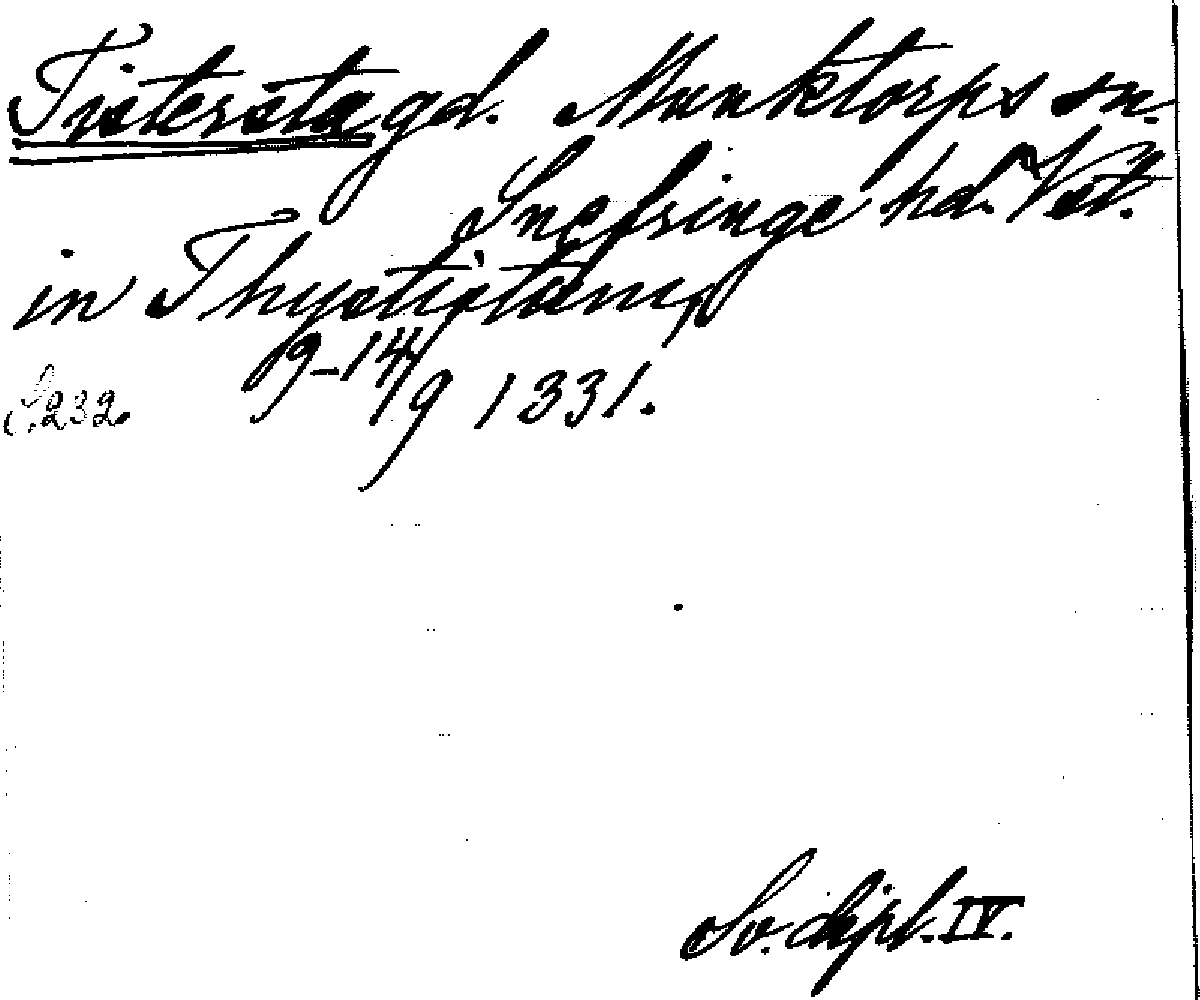 Tistersta gd. Munktorps sn.
Snefringe hd. Vst.
in Thystistamp
9-14/9 1331.
S. 232.
Sv. dipl. IV.